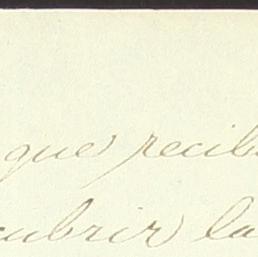 que recib
cubrir la